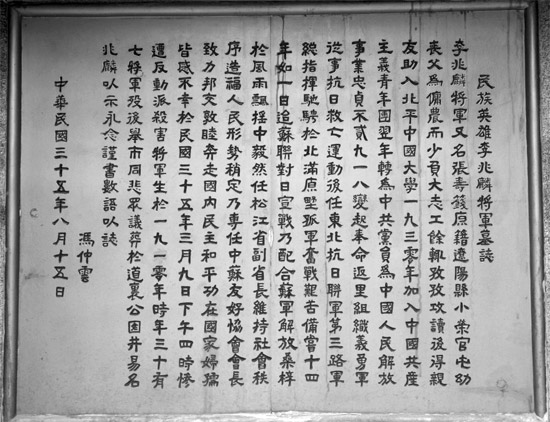 民族英雄李兆麟將軍墓誌
李兆麟將軍又名張壽籛原籍遼陽縣小榮官屯幼
喪父爲傭農而少負大志工餘輒孜孜攻讀後得親
友助入北平中國大學一九三零年加入中國共產
主義青年團翌年轉爲中共黨員爲中國人民解放
事業忠貞不貳九一八變起奉命返里組織義勇軍
從事抗日救亡運動後任東北抗日聯軍第三路軍
總指揮馳騁於北滿原野孤軍奮戰艱苦備嘗十四
年如一日迨蘇聯對日宣戰乃配合蘇軍解放桑梓
於風雨飄搖中毅然任松江省副省長維持社會秩
序造福人民形勢稍定乃專任中蘇友好協會會長
致力邦交敦睦奔走國內民主和平功在國家婦孺
皆感不幸於民國三十五年三月九日下午四時慘
遭反動派殺害將軍生於一九一零年時年三十有
七將軍歿後舉市同悲眾議葬於道裏公園并易名
兆麟以示永念謹書數語以誌
馮仲雲
中華民國三十五年八月十五日